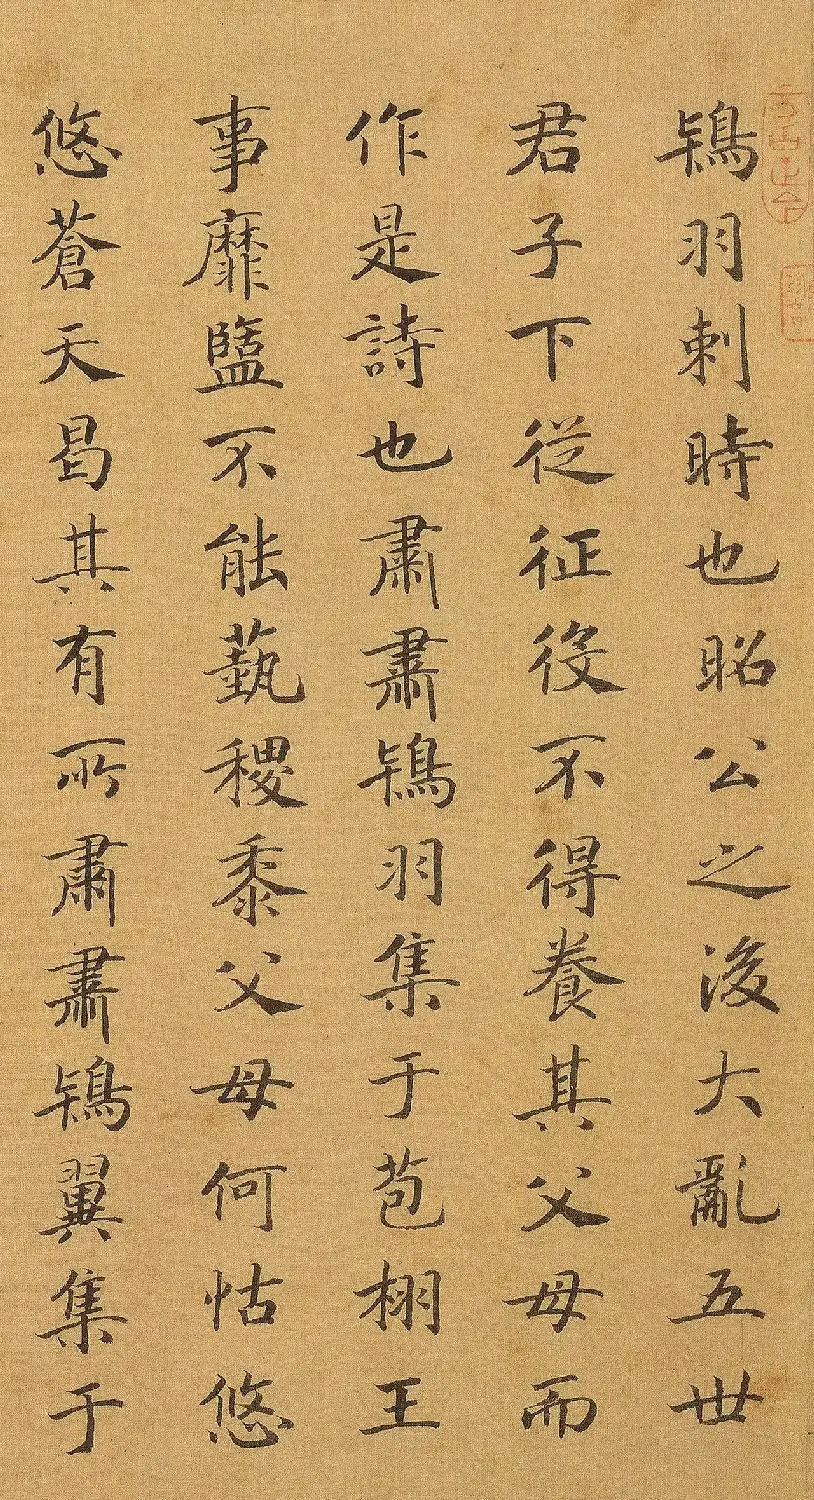 鴇羽刺時也昭公之後大亂五世
君子下從征役不得養其父母而
作是詩也肅肅鴇羽集于苞栩王
事靡盬不能蓺稷黍父母何怙悠
悠蒼天曷其有所肅肅鴇翼集于